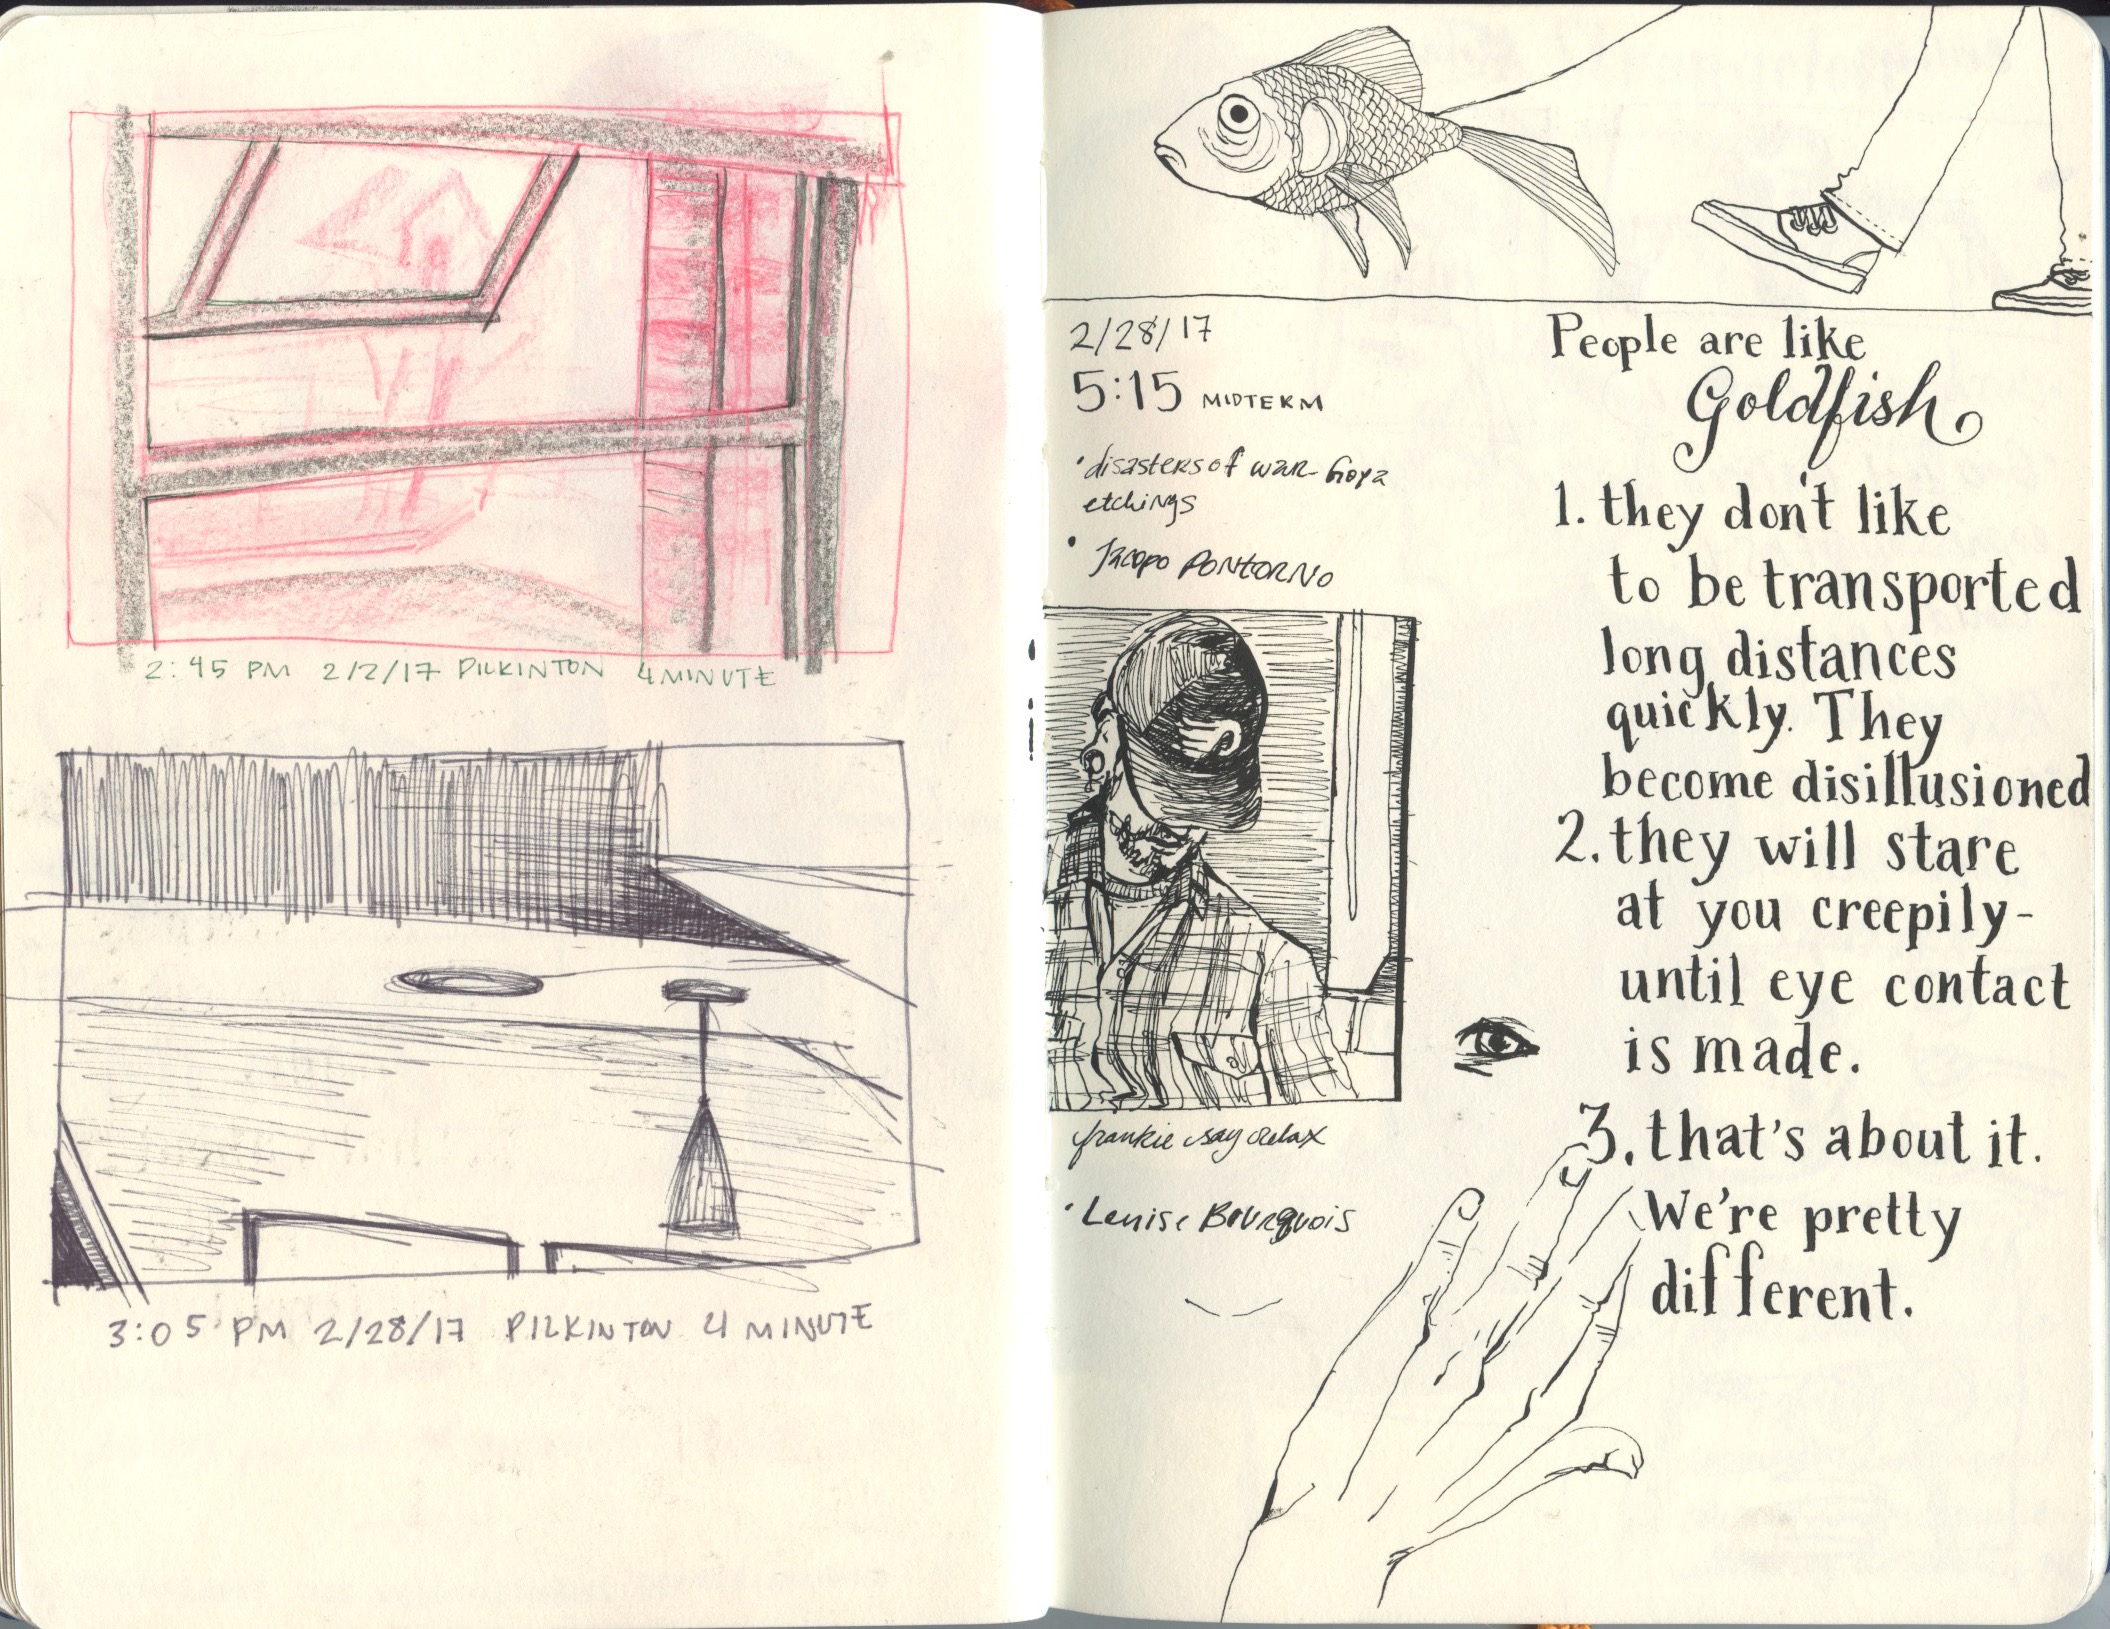 2:45 PM 2/2/17 PILKINTON 4 MINUTE
3:05 PM 2/28/17 PILKINTON 4 MINUTE
2/28/17
5:15 MIDTERM
• disasters of war - Goya
etchings
• Jacopo PONTORNO
frankie say relax
• Louise Bourgeois
People are like
Goldfish
1. they don't like
to be transported
long distances
quickly. They
become disillusioned
2. they will stare
at you creepily-
until eye contact
is made.
3. that's about it.
We're pretty
different.